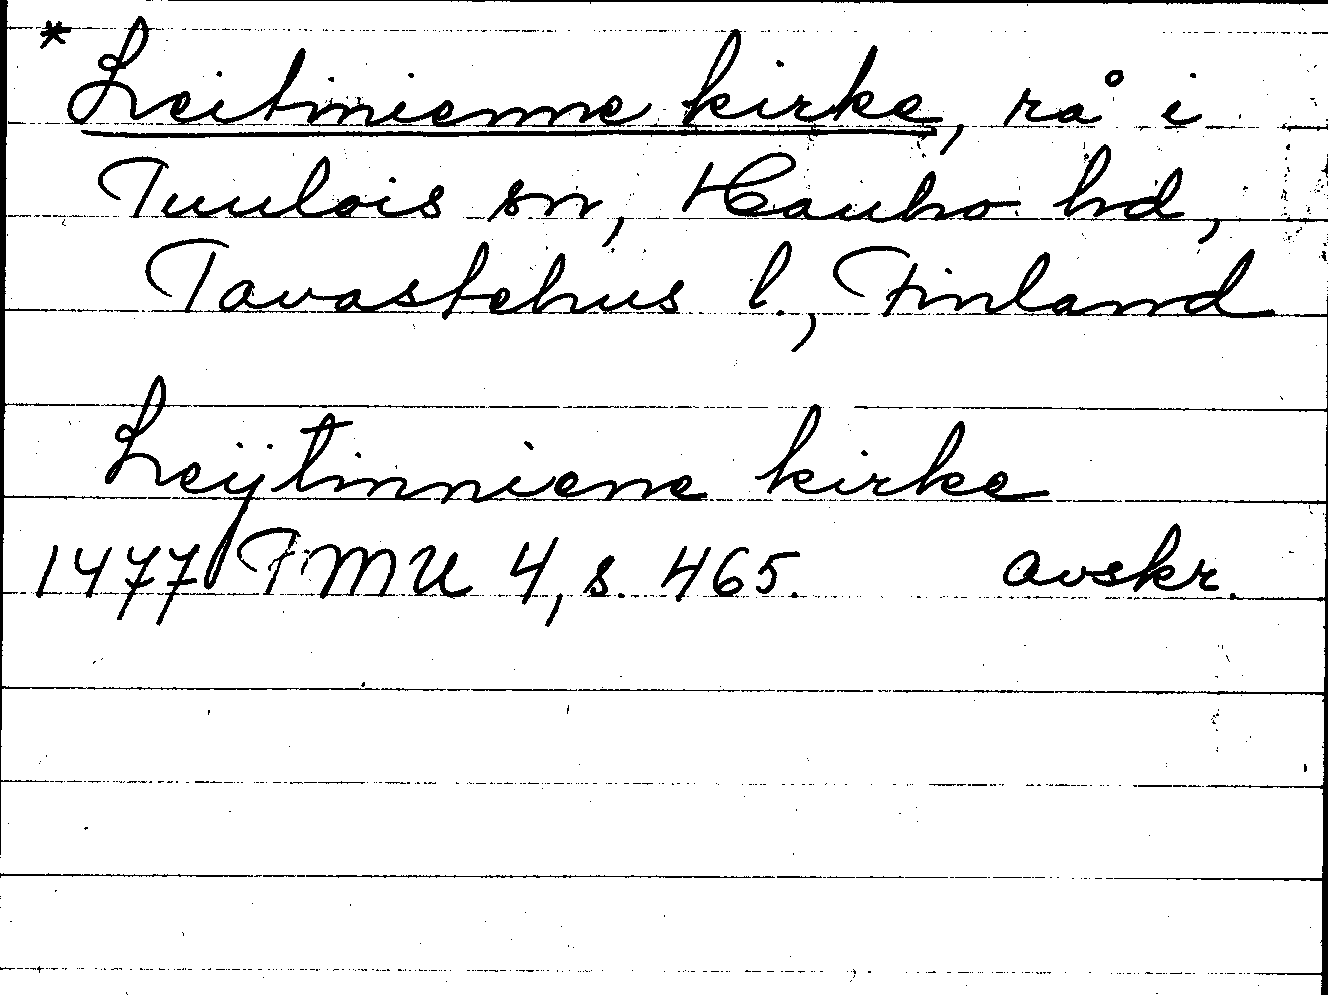 * Leitinienne kirke, rå i
Tuulois sn, Hauho hd,
Tavastehus l., Finland
Leijtinniene kirke
1477 FMU 4, s. 465. avskr.